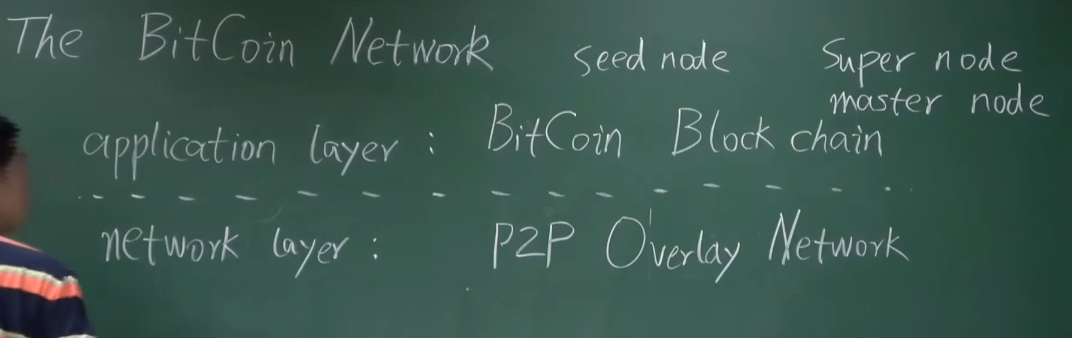 The BitCoin Network seed node Super node
master node
application layer : BitCoin Block chain
network layer : P2P Overlay Network